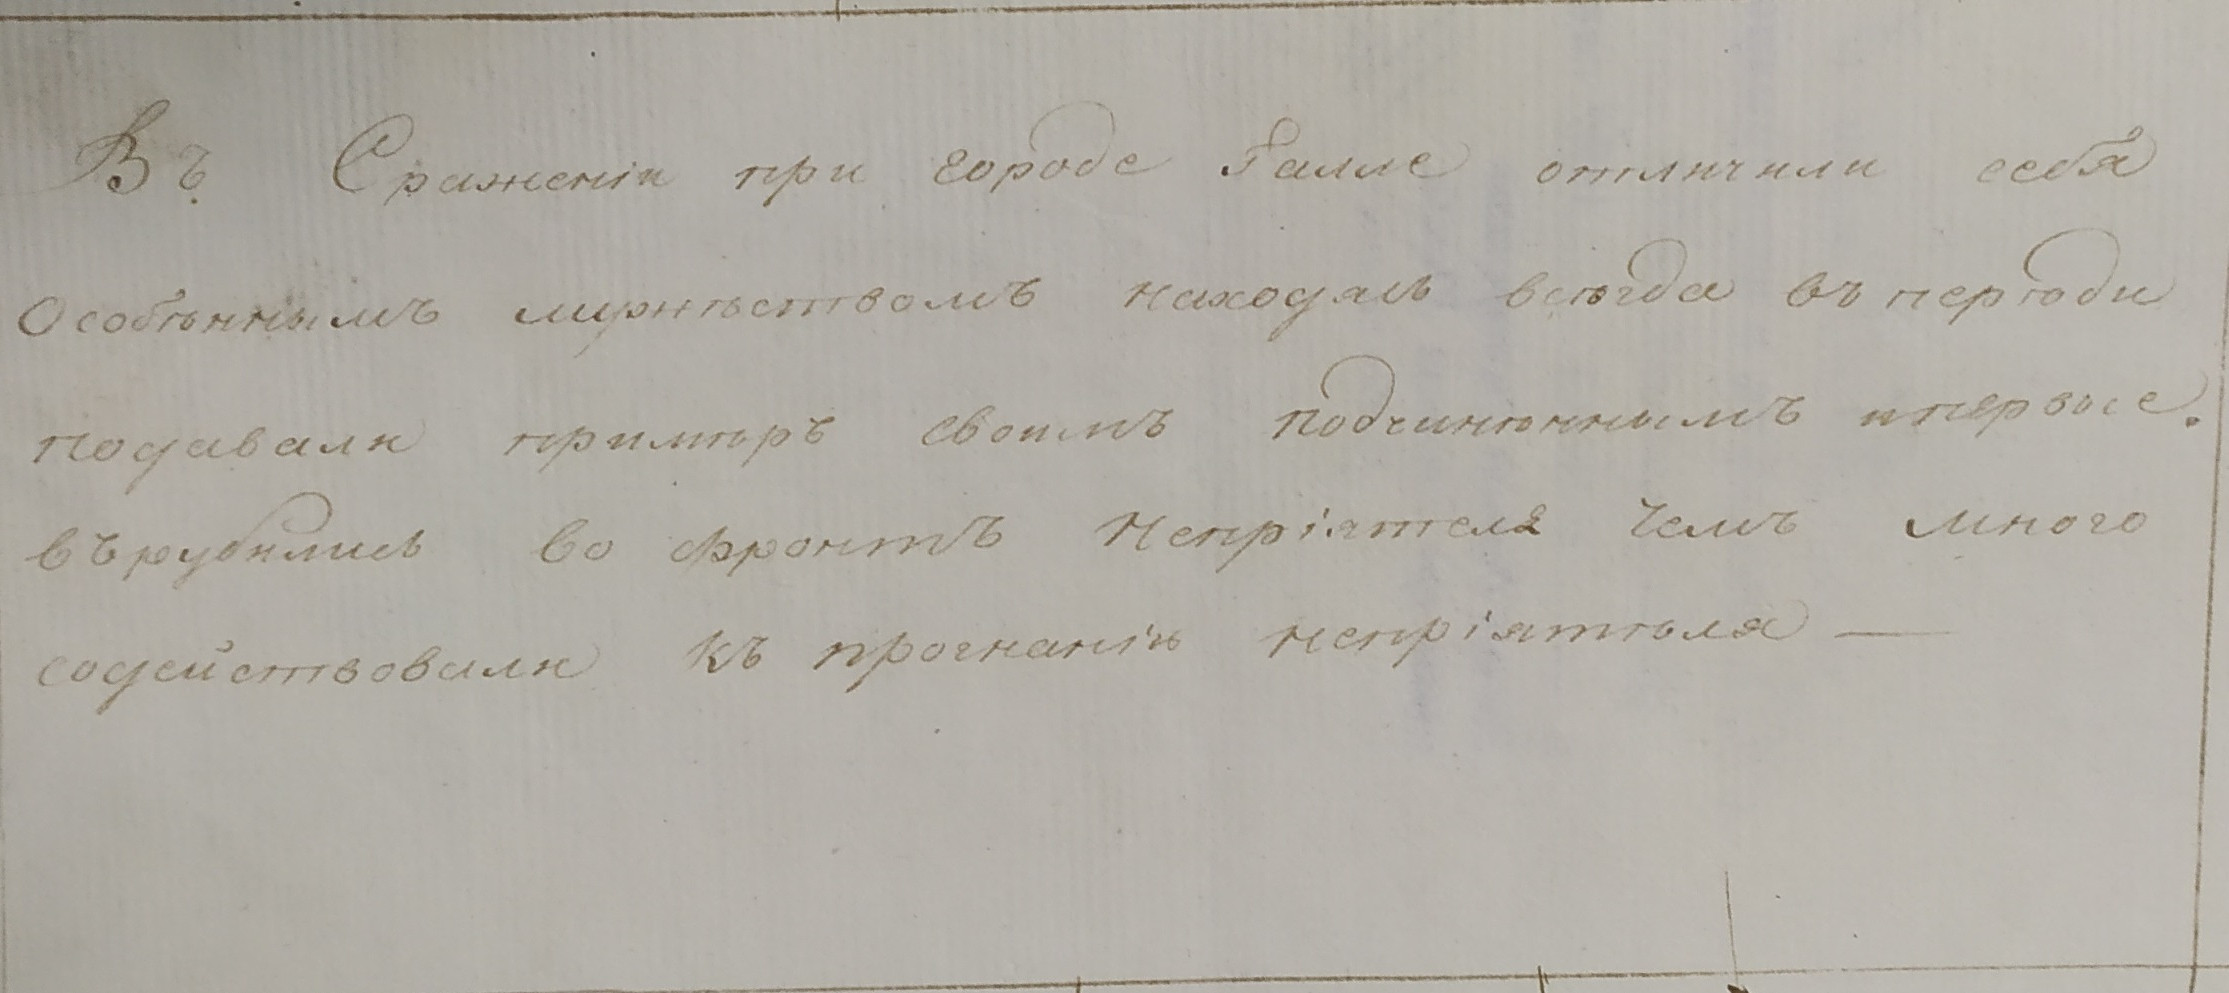 Въ Сраженіи при городе Галле отличили себя
Особѣннымъ мужѣствомъ находясь всѣгда въ перѣди
подавали примѣръ своимъ подчинѣннымъ ипервые.
върубились во фронтъ Непріятеля Чемъ много
содействовали къ прогнанію непріятѣля —